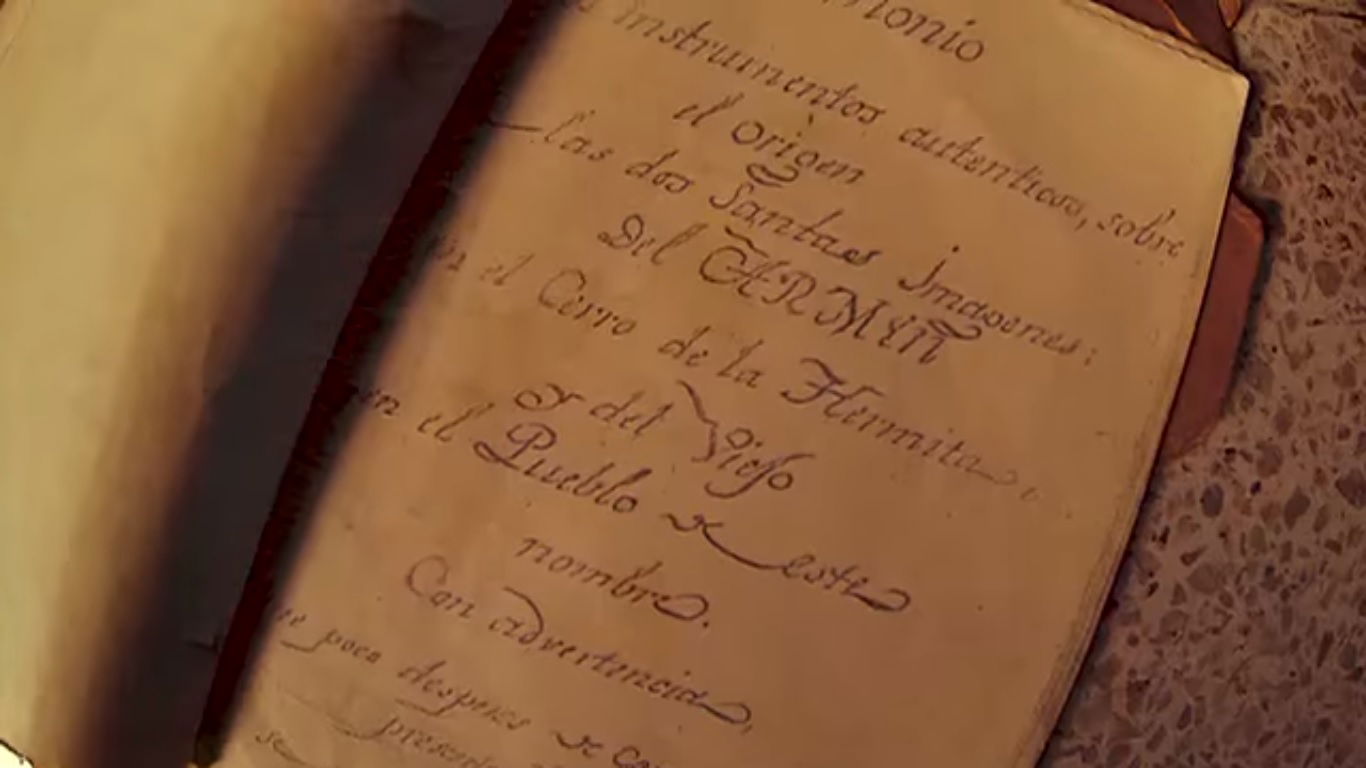 monio
instrumentos autenticos, sobre
el origen
las dos Santas Imagenes:
Del CARMEN
el Cerro de la Hermita,
y del Viejo
en el Pueblo de este
nombre.
Con advertencia,
poco despues de
se